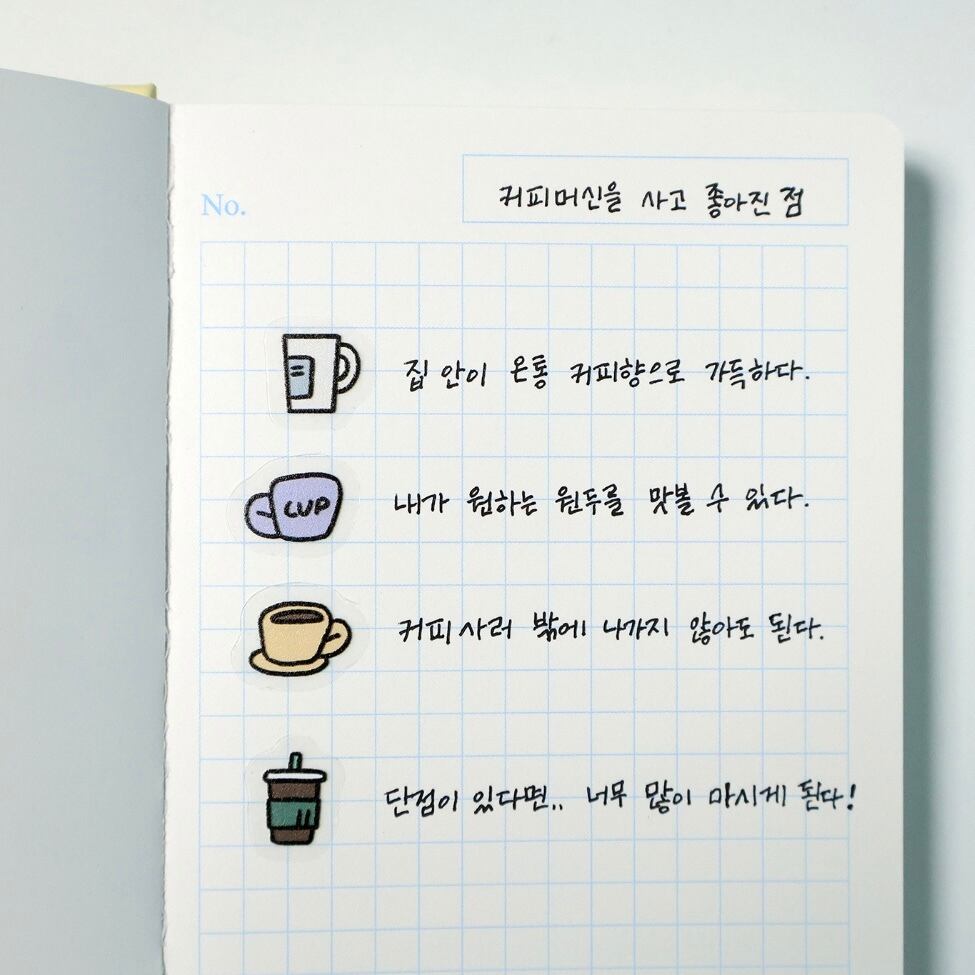 No.
커피머신을 사고 좋아진 점
집 안이 온통 커피향으로 가득하다.
CUP
내가 원하는 원두를 맛볼 수 있다.
커피 사러 밖에 나가지 않아도 된다.
단점이 있다면.. 너무 많이 마시게 된다!